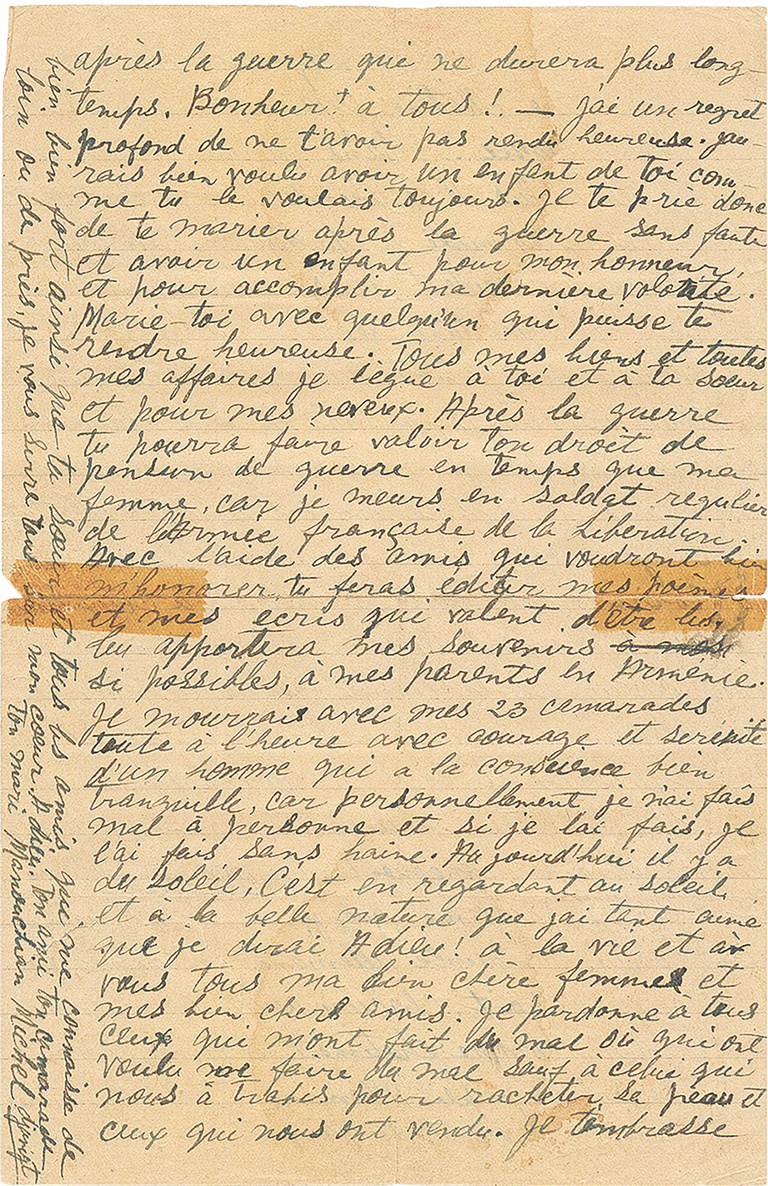 après la guerre qui ne durera plus long-
temps. Bonheur! à tous! — j'ai un regret
profond de ne t'avoir pas rendu heureuse. jau-
rais bien voulu avoir un enfant de toi com-
me tu le voulais toujours. Je te prie donc
de te marier après la guerre sans faute
et avoir un enfant pour mon honneur,
et pour accomplir ma dernière volonté.
Marie-toi avec quelqu'un qui puisse te
rendre heureuse. Tous mes biens et toutes
mes affaires je lègue à toi et à ta sœur
et pour mes neveux. Après la guerre
tu pourra faire valoir ton droit de
pension de guerre en temps que ma
femme, car je meurs en soldat regulier
de l'Armée française de la Libération.
Avec l'aide des amis qui voudront bien
m'honorer, tu feras éditer mes poèmes
et mes ecris qui valent d'être lus.
Tu apportera mes souvenirs à mes
si possibles, à mes parents en Arménie.
Je mourrais avec mes 23 camarades
toute à l'heure avec courage et serénité
d'un homme qui a la conscience bien
tranquille, car personnellement je n'ai fais
mal à personne et si je l'ai fais, je
l'ai fais sans haine. Aujourd'hui il y a
du soleil, C'est en regardant au soleil
et à la belle nature que jai tant aimé
que je dirai Adieu! à la vie et à
vous tous ma bien chère femme et
mes bien chers amis. Je pardonne à tous
ceux qui m'ont fait du mal où qui ont
voulu me faire du mal sauf à celui qui
nous à trahis pour racheter sa peau et
ceux qui nous ont vendu. Je t'embrasse
bien bien fort ainsi que ta sœur et tous les amis que me connaisse de
loin ou de près, je vous serre tous sur mon cœur. Adieu. Ton ami ton camarade
Ton mari Manouchian Michel djanigt